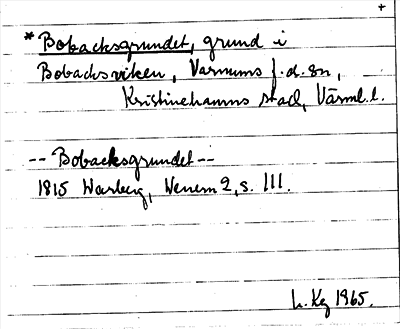 +
* Bobacksgrundet, grund i
Bobacksviken, Varnums f.d. sn,
Kristinehamns stad, Värml. l.
-- Bobacksgrundet --
1815 Warberg, Wenern 2, s. 111.
L. Kg 1965.